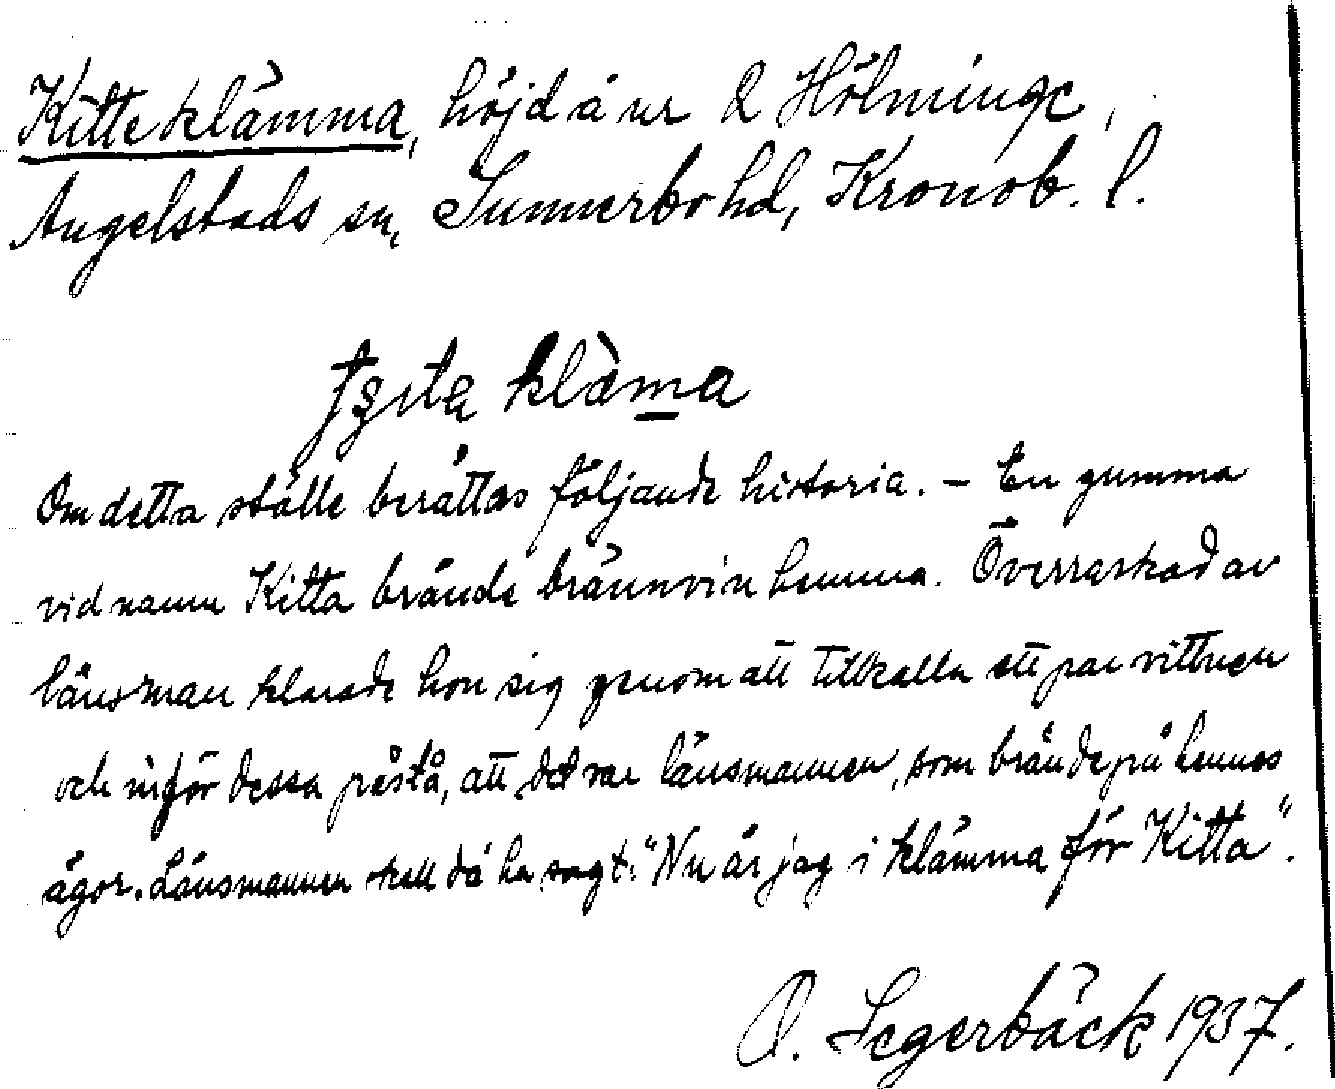 Kitteklämma, höjd å ur R Hölminge,
Angelstads sn, Sunnerbo hd, Kronob. l.
kläma
Om detta ställe berättas följande historia. – En gumma
vid namn Kitta brände brännvin hemma. Överraskad av
länsman klarade hon sig genom att tillkalla ett par vittnen
och inför dessa påstå, att det var länsmannen, som brände på hennes
ägor. Länsmannen skall då ha sagt: "Nu är jag i klämma för Kitta".
O. Segerbäck 1937.